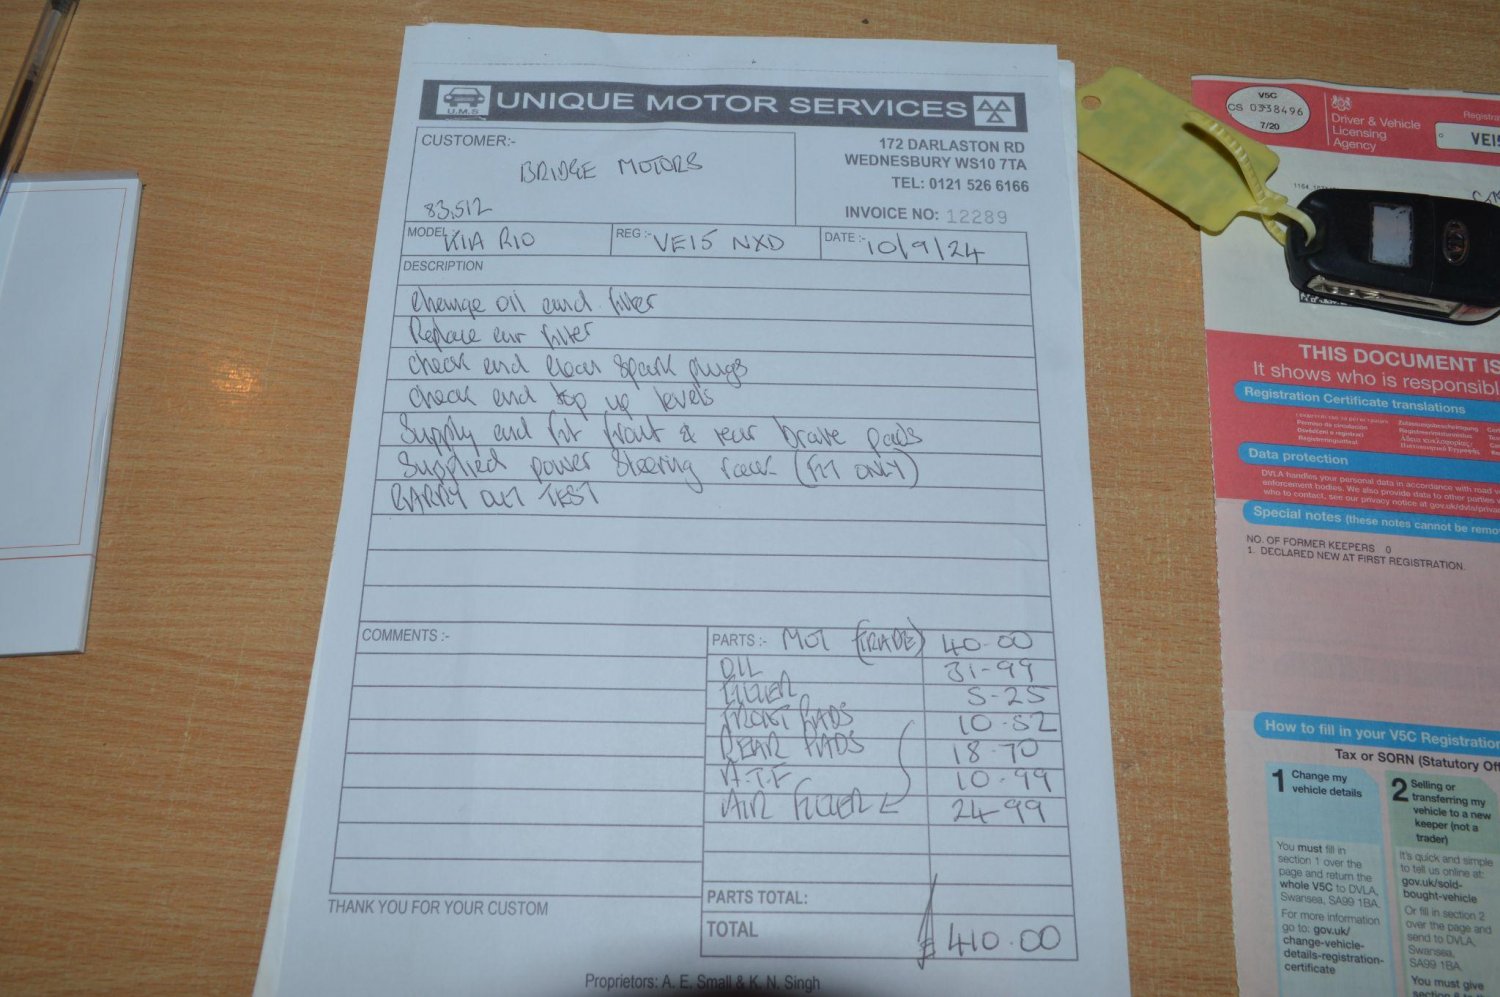 UNIQUE MOTOR SERVICES
U.M.S
CUSTOMER:-
BRIDGE MOTORS
83,512
172 DARLASTON RD
WEDNESBURY WS10 7TA
TEL: 0121 526 6166
INVOICE NO: 12289
MODEL:- KIA RIO
REG:- VE15 NXD
DATE:- 10/9/24
DESCRIPTION
Change oil and filter
Replace air filter
check and clean spark plugs
check and top up levels
Supply and fit front & rear brake pads
Supplied power steering rack (FIT ONLY)
CARRY OUT TEST
COMMENTS:-
PARTS:- MOT (TRADE) 40.00
OIL 31-99
FILTER 5-25
FRONT PADS 10-52
REAR PADS 18-70
A.T.F 10-99
AIR FILTER 24-99
PARTS TOTAL:
TOTAL £410.00
THANK YOU FOR YOUR CUSTOM
Proprietors: A. E. Small & K. N. Singh
V5C
CS 0338496
7/20
Driver & Vehicle
Licensing
Agency
VE15
THIS DOCUMENT IS
It shows who is responsibl
Registration Certificate translations
Data protection
DVLA handles your personal data in accordance with road
enforcement bodies. We also provide data to other parties
who to contact, see our privacy notice at gov.uk/dvla/priva
Special notes (these notes cannot be remo
NO. OF FORMER KEEPERS 0
1. DECLARED NEW AT FIRST REGISTRATION.
How to fill in your V5C Registration
Tax or SORN (Statutory Off
1 Change my
vehicle details
You must fill in
section 1 over the
page and return the
whole V5C to DVLA,
Swansea, SA99 1BA.
For more information
go to: gov.uk/
change-vehicle-
details-registration-
certificate
2 Selling or
transferring my
vehicle to a new
keeper (not a
trader)
It's quick and simple
to tell us online at:
gov.uk/sold-
bought-vehicle
Or fill in section 2
over the page and
send to DVLA,
Swansea,
SA99 1BA.
You must give